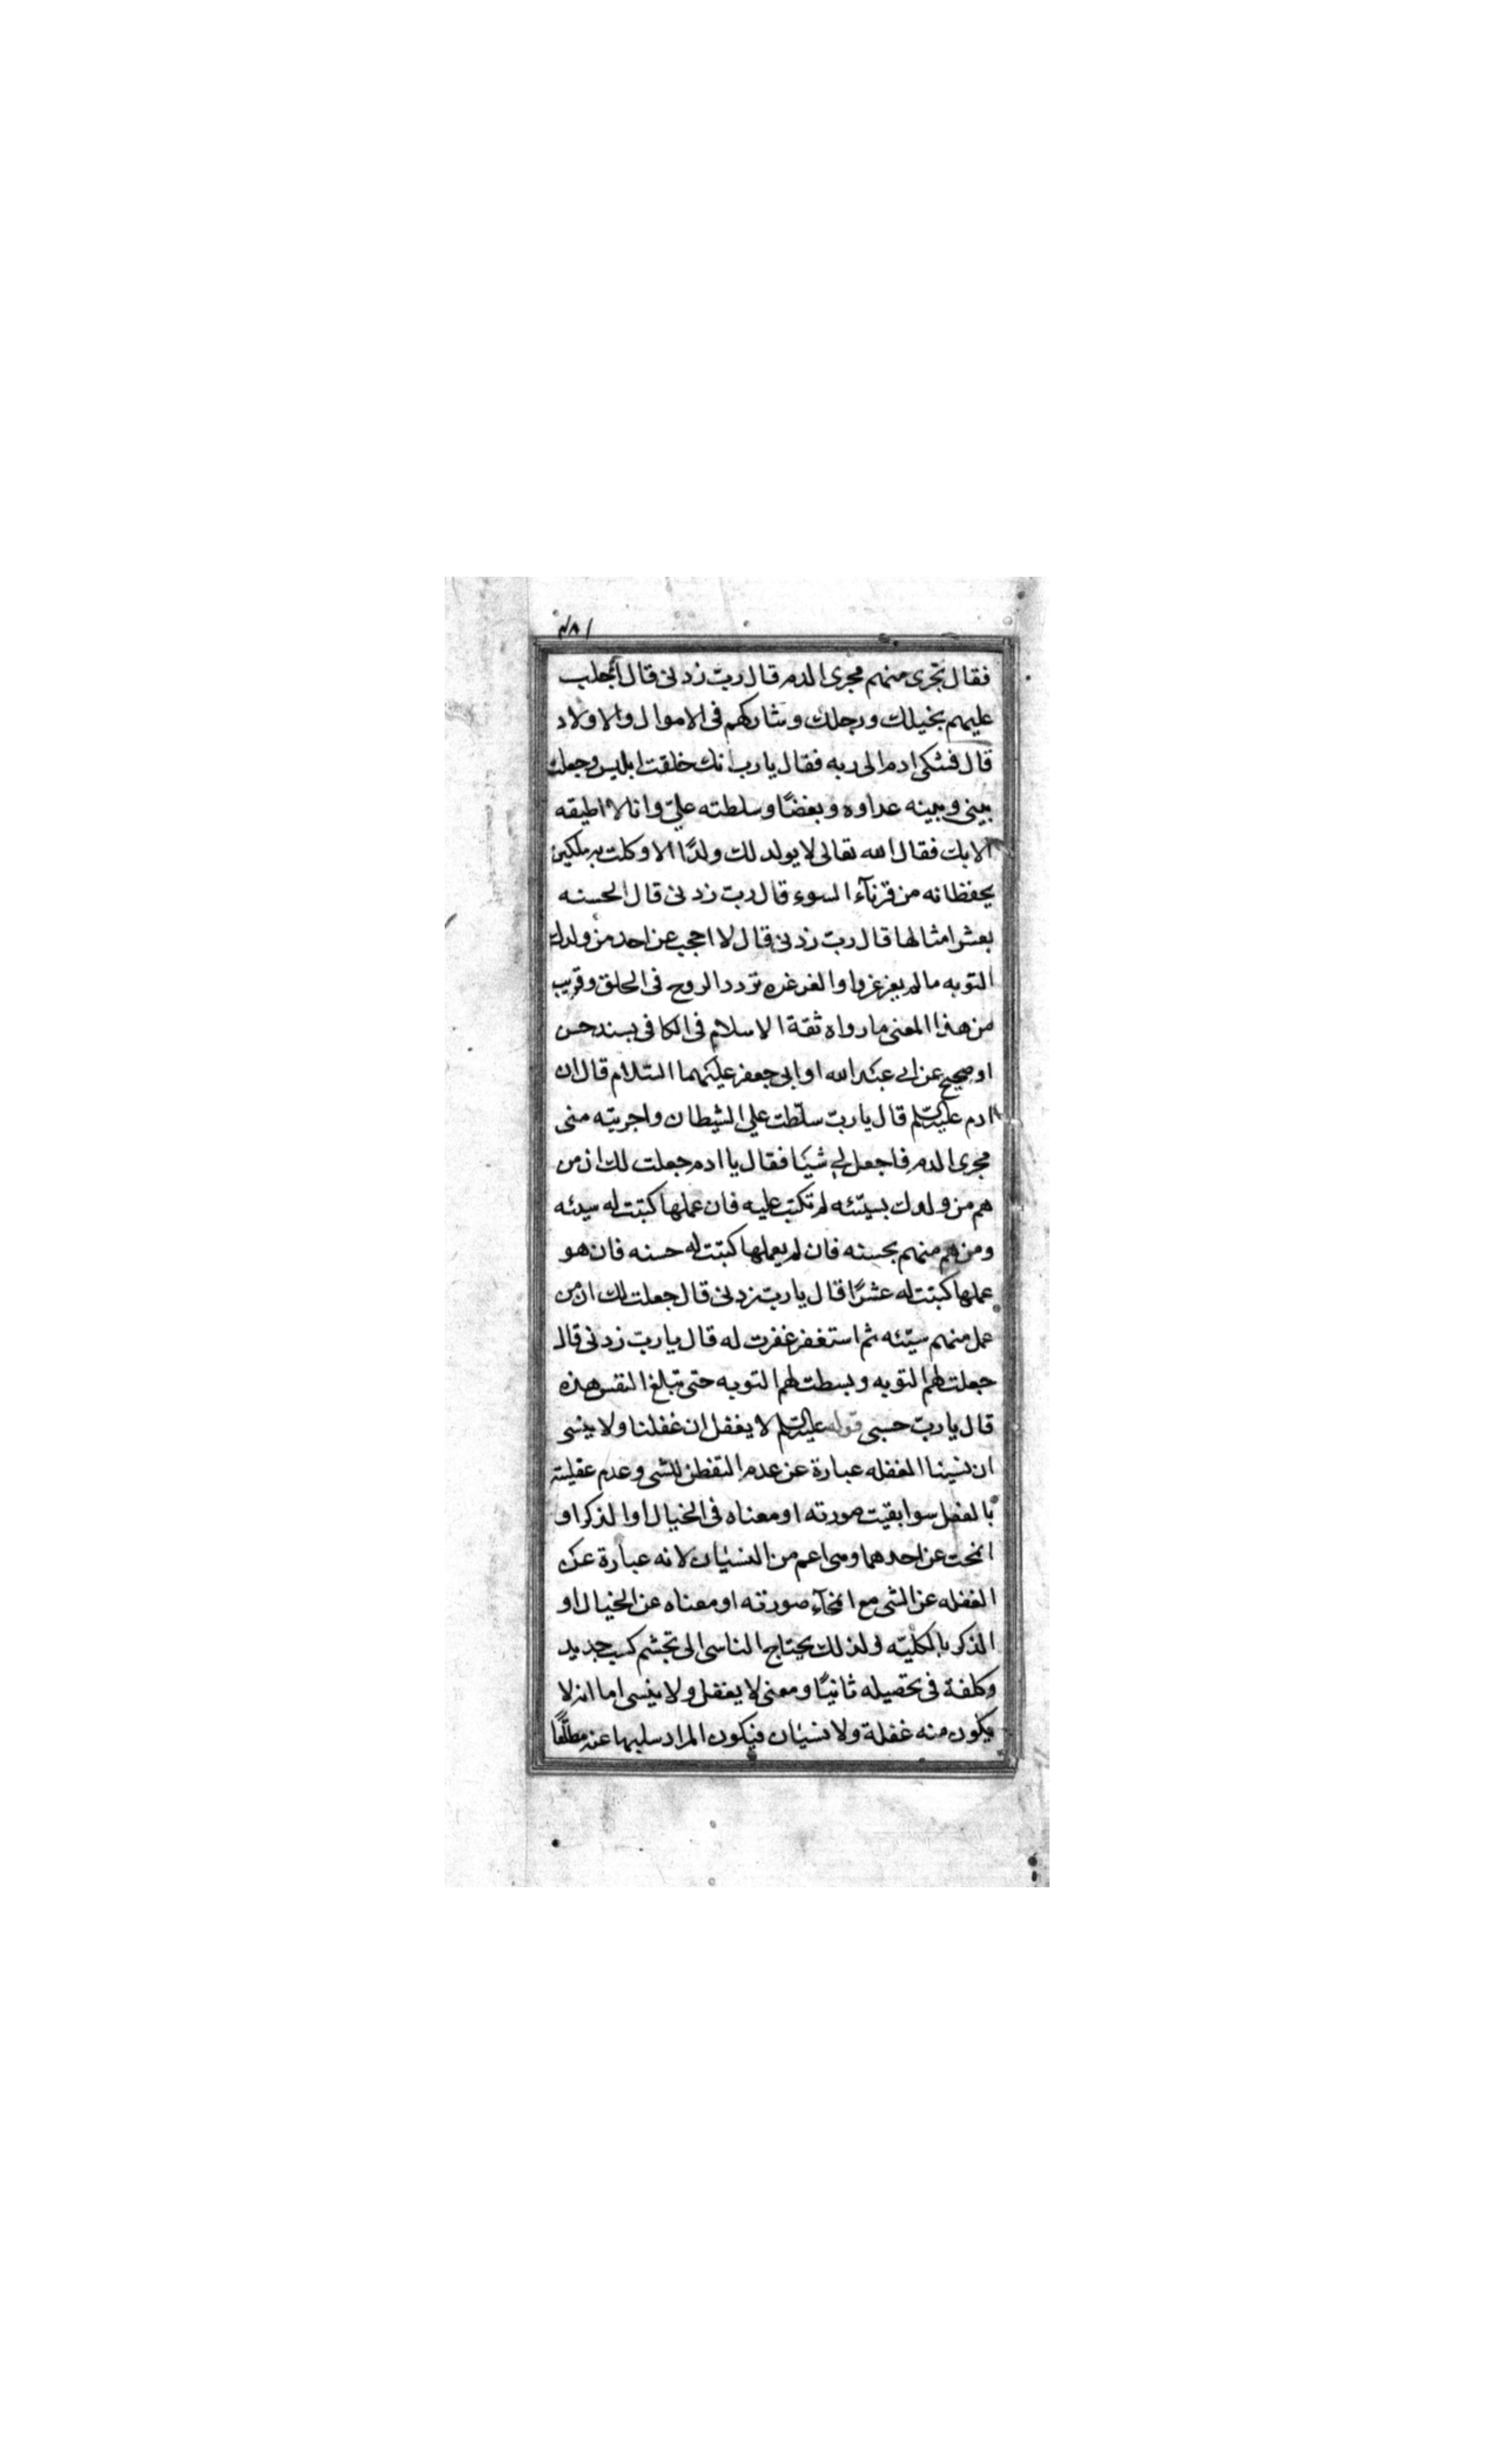 فقال تجرى منهم مجرى الدم قال رب زدنى قال اجلب
عليهم بخيلك ورجلك وشاركهم فى الاموال والاولاد
قال فشكى ادم الى ربه فقال يا رب انك خلقت ابليس وجعلت
بينى وبينه عداوه وبغضًا وسلطته علىّ وانا لا اطيقه
الا بك فقال الله تعالى لا يولد لك ولدًا الا وكلت به ملكين
يحفظانه من قرنآء السوء قال ربّ زدنى قال الحسنه
بعشر امثالها قال ربّ زدنى قال لا احجب عن احد من ولدك
التوبه ما لم يغرغروا والغرغره تردد الروح فى الحلق وقريب
من هذا المعنى ما رواه ثقة الاسلام فى الكافى بسند حسن
او صحيح عن ابى عبد الله او ابى جعفر عليهما السّلام قال ان
ادم عليه السلم قال يا ربّ سلّطت على الشيطان واجريته منى
مجرى الدم فاجعل لى شيئا فقال يا ادم جعلت لك ان من
هم من ولدك بسيّئه لم تكتب عليه فان عملها كتبت له سيئه
ومن هم منهم بحسنه فان لم يعملها كتبت له حسنه فان هو
عملها كتبت له عشرًا قال يا ربّ زدنى قال جعلت لك ان من
عمل منهم سيّئه ثم استغفر غفرت له قال يا ربّ زدنى قال
جعلت لهم التوبه وبسطت لهم التوبه حتى تبلغ النفس هذه
قال يا ربّ حسبى قوله عليه السلم لا يغفل ان غفلنا ولا ينسى
ان نسينا الغفله عبارة عن عدم التفطن للشى وعدم عقليته
بالفعل سوا بقيت صورته او معناه فى الخيال او الذكر او
انمحت عن احدهما وهى اعم من النسيان لانه عبارة عن
الغفله عن الشى مع انمحآء صورته او معناه عن الخيال او
الذكر بالكليّه ولذلك يحتاج الناسى الى تجشم كسب جديد
وكلفة فى تحصيله ثانيًا ومعنى لا يغفل ولا ينسى اما انه لا
يكون منه غفلة ولا نسيان فيكون المراد سلبها عنه مطلقًا